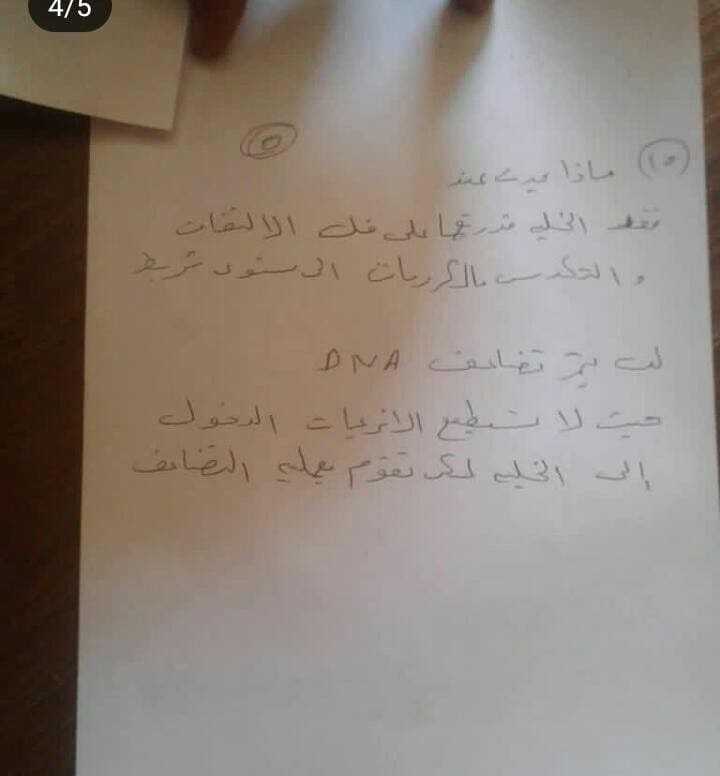 4/5
٥
١٥ ماذا يحدث عند
فقد الخليه قدرتها على فك الالتفات
والتكدس بالكرومات الى مستوى شريط
لن يتم تضاعف DNA
حيث لا تستطيع الانزيمات الدخول
إلى الخليه لكى تقوم بعمليه التضاعف